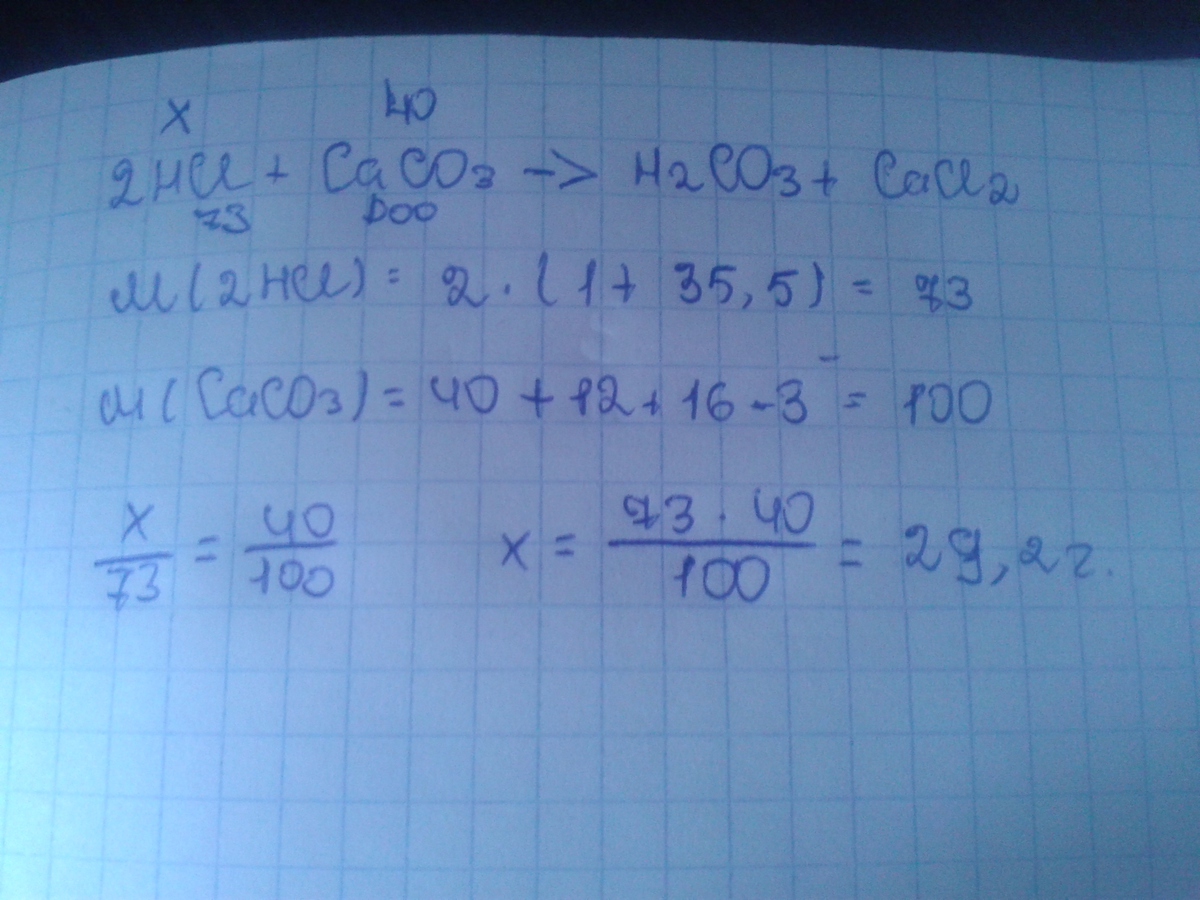 x 40
2HCl + CaCO3 -> H2CO3 + CaCl2
73 100
M(2HCl) = 2 · (1 + 35,5) = 73
M(CaCO3) = 40 + 12 + 16 · 3 = 100
x/73 = 40/100 x = 73 · 40/100 = 29,2 г.